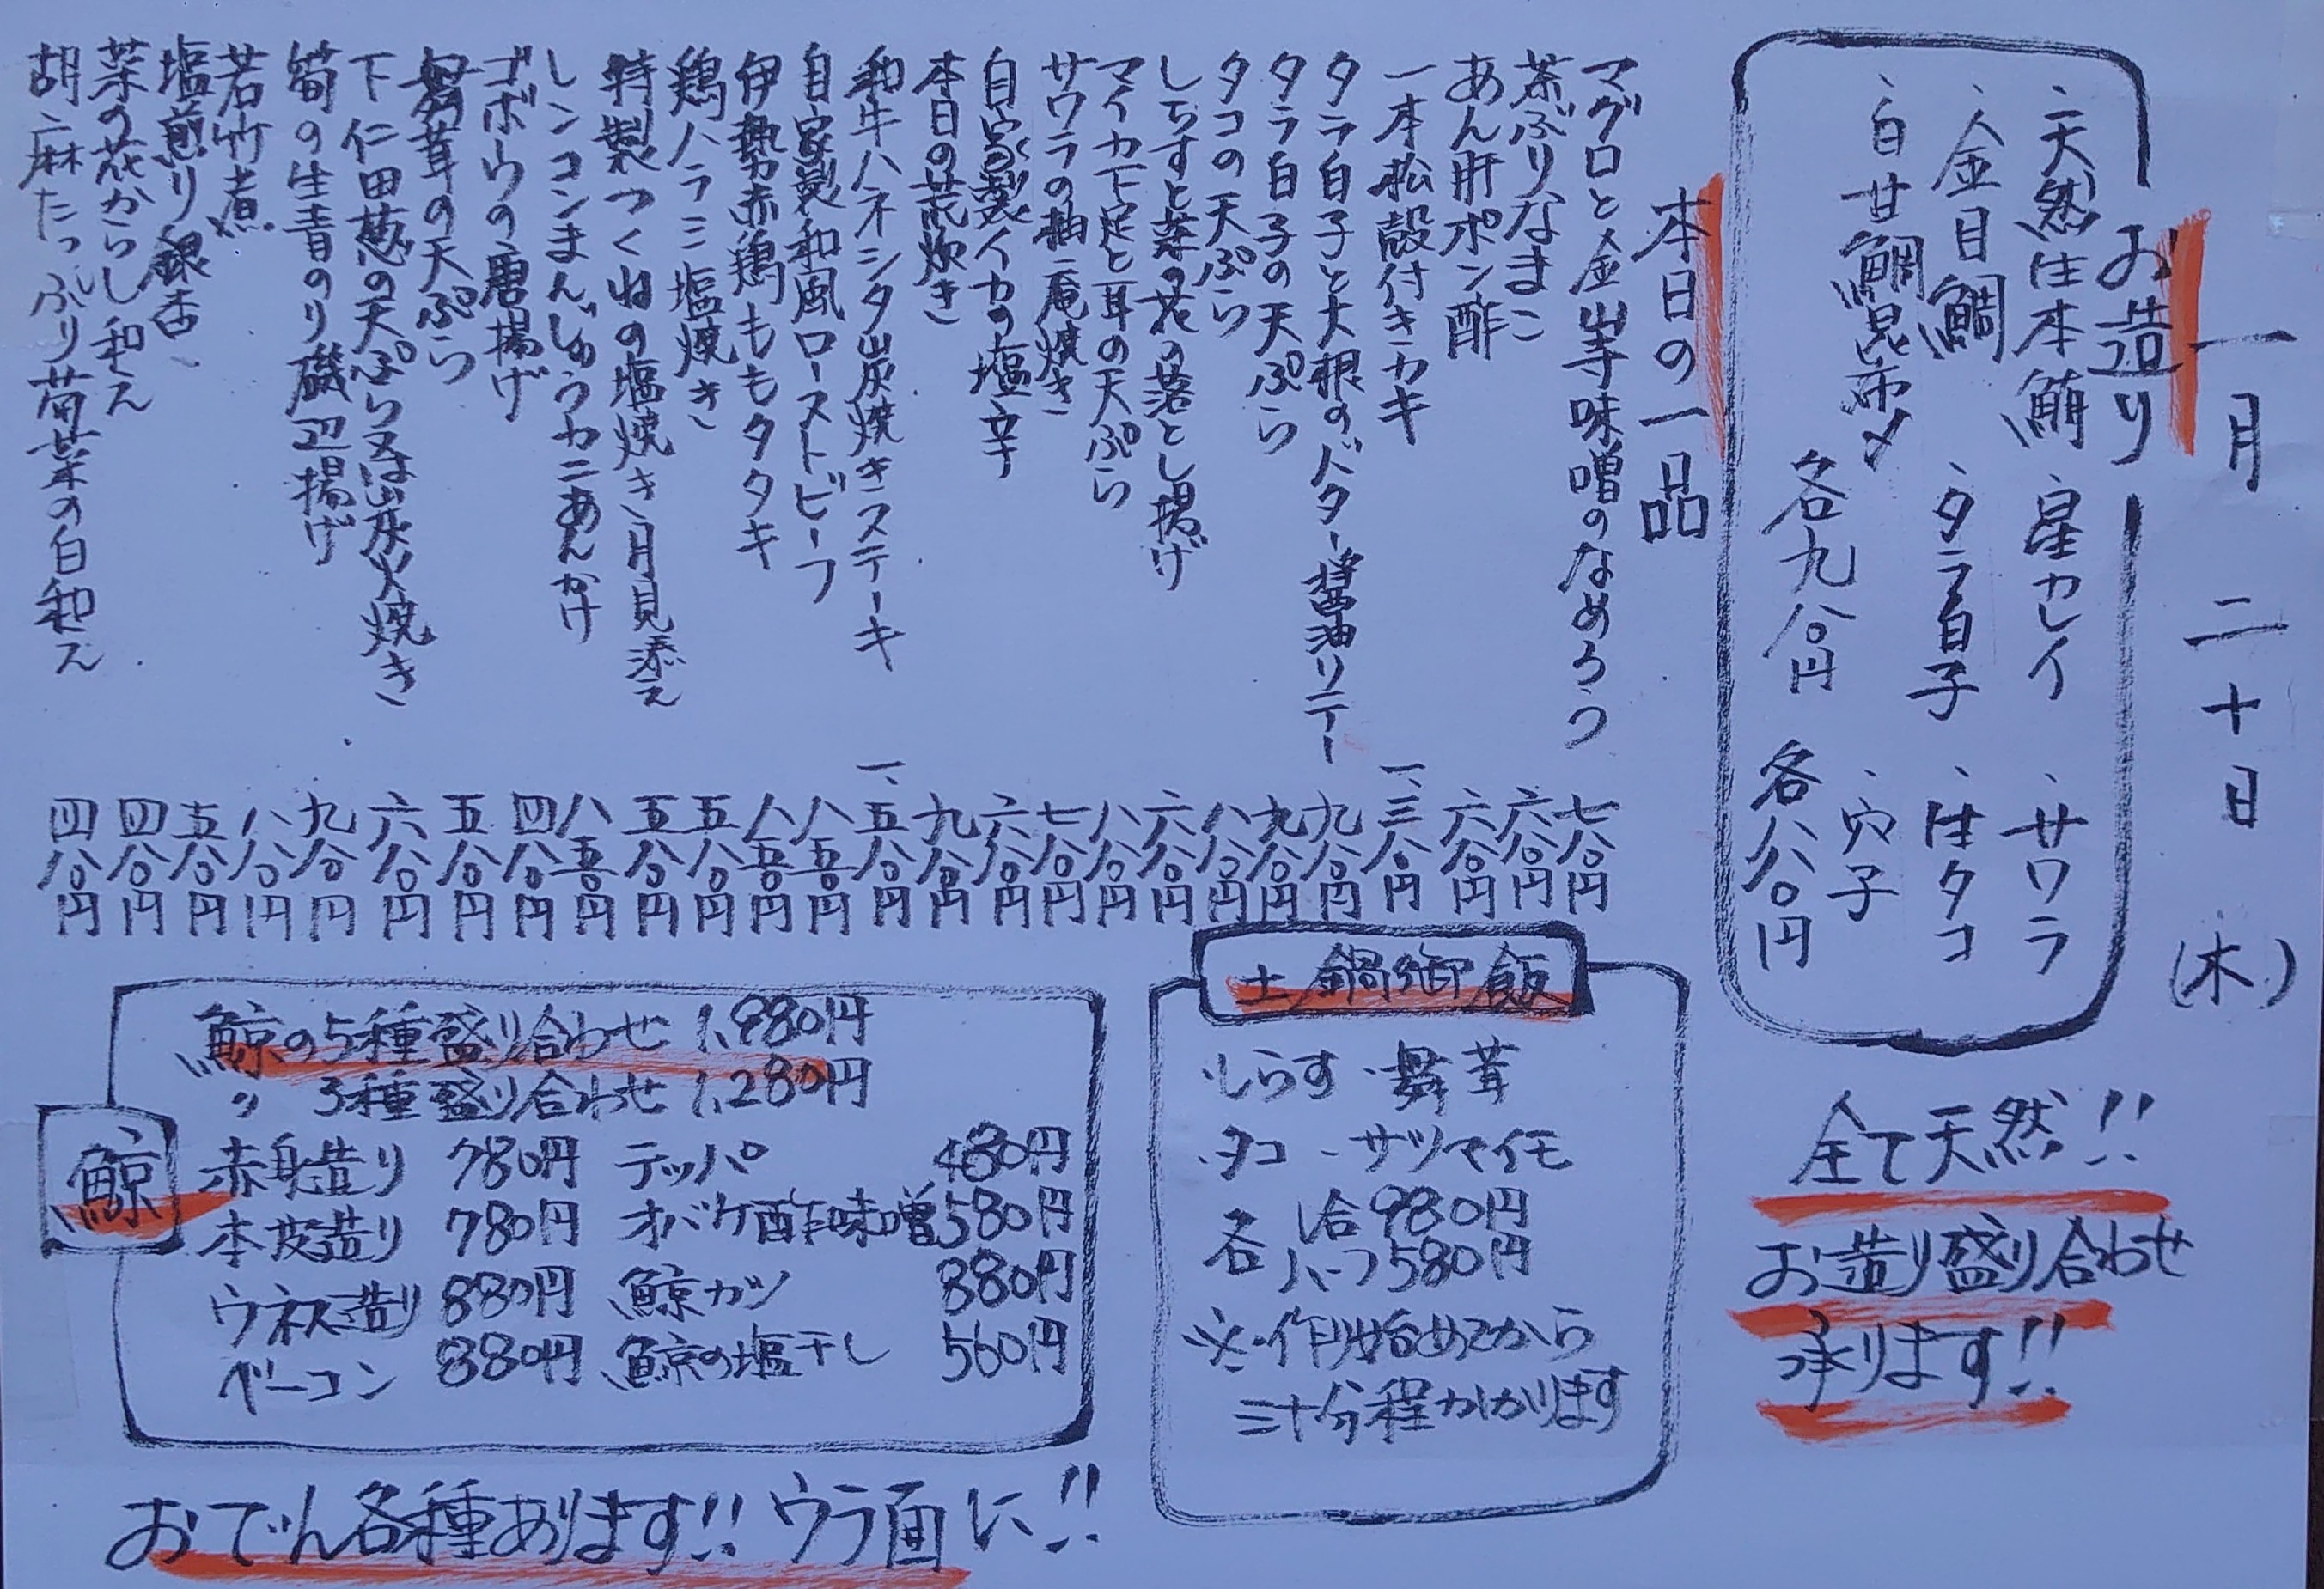 一月二十日(木)
お造り
、天然生本鮪 、星カレイ 、サワラ
、金目鯛 、タラ白子 、生タコ
、白甘鯛昆布〆 、穴子
各九八〇円 各八八〇円
全て天然!!
お造り盛り合わせ
承ります!!
本日の一品
マグロと金山寺味噌のなめろう 七八〇円
茶ぶりなまこ 六八〇円
あん肝ポン酢 六八〇円
一本松殻付きカキ 一、三八〇円
タラ白子と大根のバター醤油ソテー 九八〇円
タラ白子の天ぷら 九八〇円
タコの天ぷら 八八〇円
しらすと菜の花の落とし揚げ 六八〇円
マイカ下足と耳の天ぷら 八八〇円
サワラの柚庵焼き 七八〇円
自家製イカの塩辛 六八〇円
本日の荒炊き 九八〇円
和牛ハネシタ炭焼きステーキ 一、五八〇円
自家製和風ローストビーフ 八五〇円
伊勢赤鶏ももタタキ 八五〇円
鶏ハラミ塩焼き 五八〇円
特製つくねの塩焼き月見添え 五八〇円
レンコンまんじゅうカニあんかけ 八五〇円
ゴボウの唐揚げ 四八〇円
舞茸の天ぷら 五八〇円
下仁田葱の天ぷら又は炭火焼き 六八〇円
筍の生青のり磯辺揚げ 九八〇円
若竹煮 八八〇円
塩煎り銀杏 五八〇円
菜の花からし和え 四八〇円
胡麻たっぷり菊菜の白和え 四八〇円
土鍋御飯
・しらす ・舞茸
・タコ ・サツマイモ
各 1合980円
各 ハーフ580円
※作り始めてから
三十分程かかります
鯨
鯨の5種盛り合わせ 1,980円
〃 3種盛り合わせ 1,280円
赤身造り 780円 テッパ 480円
本皮造り 780円 オバケ酢味噌 580円
ウネス造り 880円 鯨カツ 880円
ベーコン 880円 鯨の塩干し 560円
おでん各種あります!! ウラ面に!!